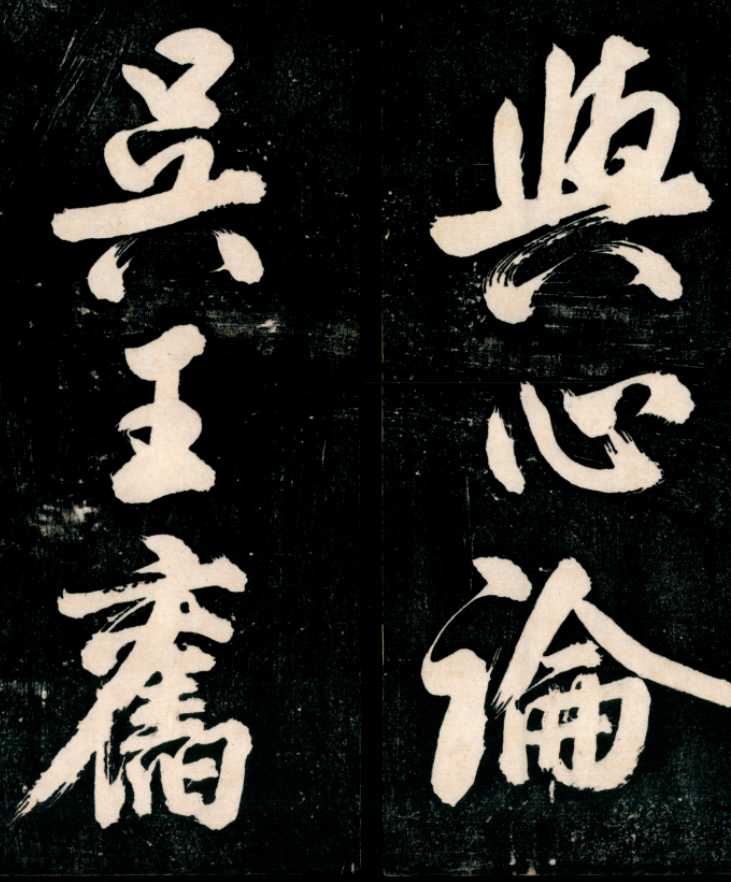 與心論
吳王舊